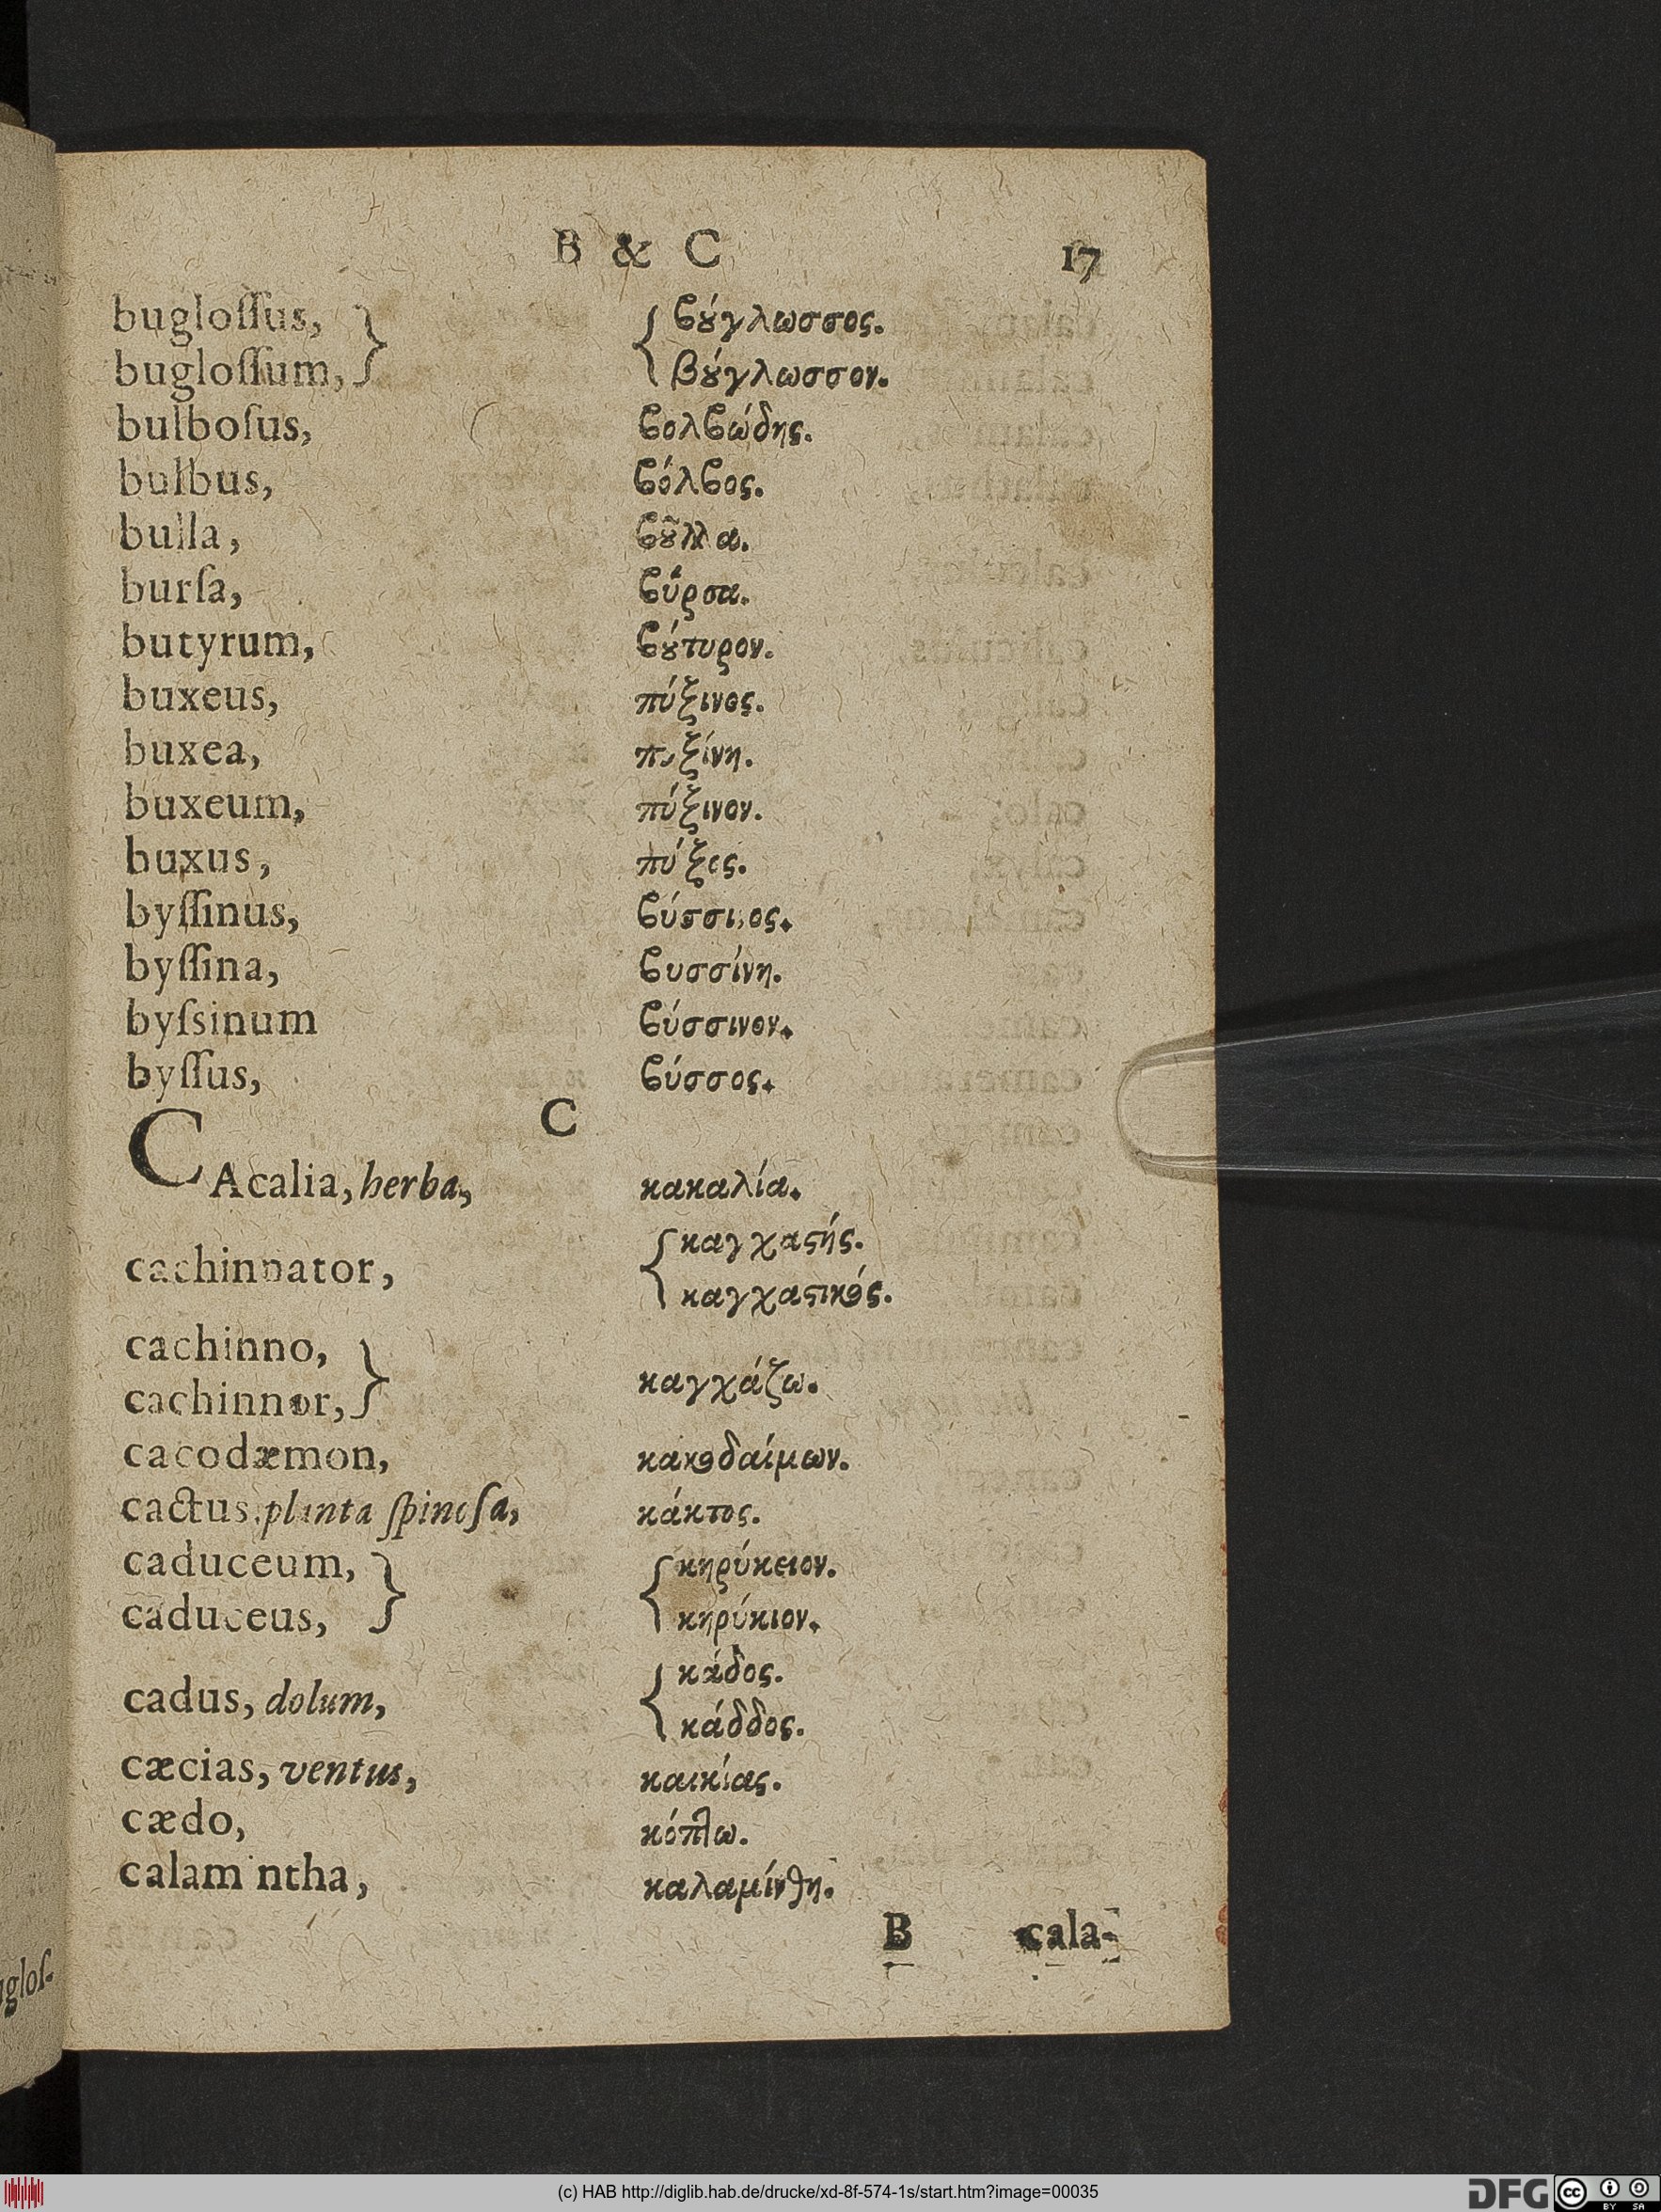 B & C 17
bugloſſus, } { ϐȣ́γλωσσος.
bugloſſum, } { βȣ́γλωσσον.
bulboſus, ϐολϐώδης.
bulbus, ϐόλϐος.
bulla, ϐȣ͂λλα.
burſa, ϐύρσα.
butyrum, ϐȣ́τυρον.
buxeus, πύξινος.
buxea, πυξίνη.
buxeum, πύξινον.
buxus, πύξος.
byſſinus, ϐύσσινος.
byſſina, ϐυσσίνη.
byſsinum ϐύσσινον.
byſſus, ϐύσσος.
C
CAcalia, herba, κακαλία.
cachinnator, { καγχαϛής.
{ καγχαϛικός.
cachinno, }
cachinnor, } καγχάζω.
cacodæmon, κακοδαίμων.
cactus, planta ſpinoſa, κάκτος.
caduceum, } { κηρύκειον.
caduceus, } { κηρύκιον.
cadus, dolum, { κάδος.
{ κάδδος.
cæcias, ventus, καικίας.
cædo, κόπτω.
calamintha, καλαμίνθη.
B cala-
gloſ-
(c) HAB http://diglib.hab.de/drucke/xd-8f-574-1s/start.htm?image=00035
DFG cc BY SA